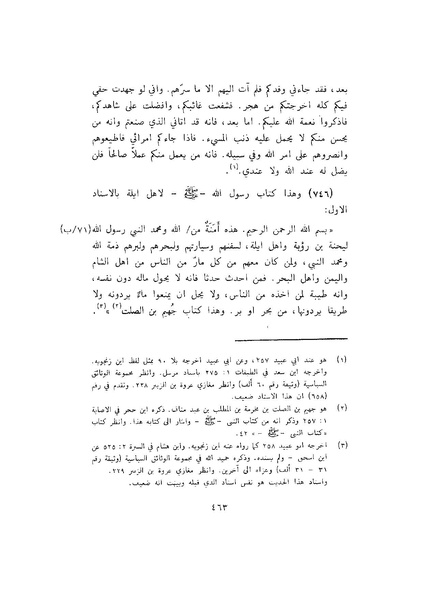 بعد، فقد جاءني وفدكم فلم آت اليهم الا ما سرّهم. واني لو جهدت حقي
فيكم كله اخرجتكم من هجر. فشفعت غائبكم، وافضلت على شاهدكم،
فاذكروا نعمة الله عليكم. اما بعد، فانه قد اتاني الذي صنعتم وانه من
يحسن منكم لا يحمل عليه ذنب المسيء. فاذا جاءكم امرائي فاطيعوهم
وانصروهم على امر الله وفي سبيله. فانه من يعمل منكم عملاً صالحاً فلن
يضل له عند الله ولا عندي.(١).
(٧٤٦) وهذا كتاب رسول الله – ﷺ – لاهل ايلة بالاسناد
الاول:
«بسم الله الرحمن الرحيم. هذه أَمَنَةٌ من/ الله ومحمد النبي رسول الله(٧١/ب)
ليحنة بن رؤبة واهل ايلة، لسفنهم وسيارتهم ولبحرهم ولبرهم ذمة الله
ومحمد النبي، ولمن كان معهم من كل مارّ من الناس من اهل الشام
واليمن وأهل البحر. فمن احدث حدثا فانه لا يحول ماله دون نفسه،
وانه طيبة لمن اخذه من الناس، ولا يحل ان يمنعوا ماءً يردونه ولا
طريقا يردونها، من بحر او بر. وهذا كتاب جُهيم بن الصلت(٢)»(٣).
(١) هو عند ابي عبيد ٢٥٧، وعن ابي عبيد اخرجه بلا ٩٠ بمثل لفظ ابن زنجويه.
واخرجه ابن سعد في الطبقات ١: ٢٧٥ باسناد مرسل. وانظر مجموعة الوثائق
السياسية (وثيقة رقم ٦٠ ألف) وانظر مغازي عروة بن الزبير ٢٣٨. وتقدم في رقم
(٦٥٨) ان هذا الاسناد ضعيف.
(٢) هو جهيم بن الصلت بن مخرمة بن المطلب بن عبد مناف. ذكره ابن حجر في الاصابة
١: ٢٥٧ وذكر انه من كتاب النبي – ﷺ – واشار الى كتابه هذا. وانظر كتاب
«كتاب النبي – ﷺ – » ٤٢.
(٣) اخرجه ابو عبيد ٢٥٨ كما رواه عنه ابن زنجويه. وابن هشام في السيرة ٢: ٥٢٥ عن
ابن اسحق – ولم يسنده. وذكره حميد الله في مجموعة الوثائق السياسية (وثيقة رقم
٣١ – ٣١ ألف) وعزاه الى آخرين. وانظر مغازي عروة بن الزبير ٢٢٩.
واسناد هذا الحديث هو نفس اسناد الذي قبله وبينت انه ضعيف.
٤٦٣